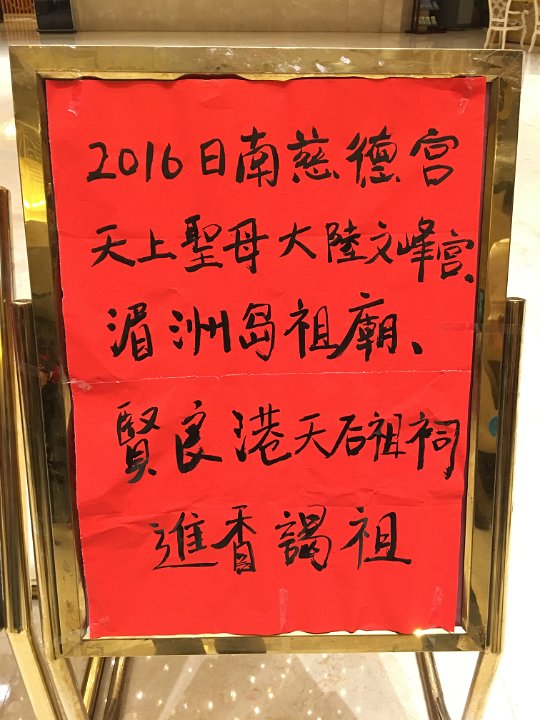 2016日南慈德宮
天上聖母大陸文峰宮、
湄洲岛祖廟、
賢良港天后祖祠
進香謁祖